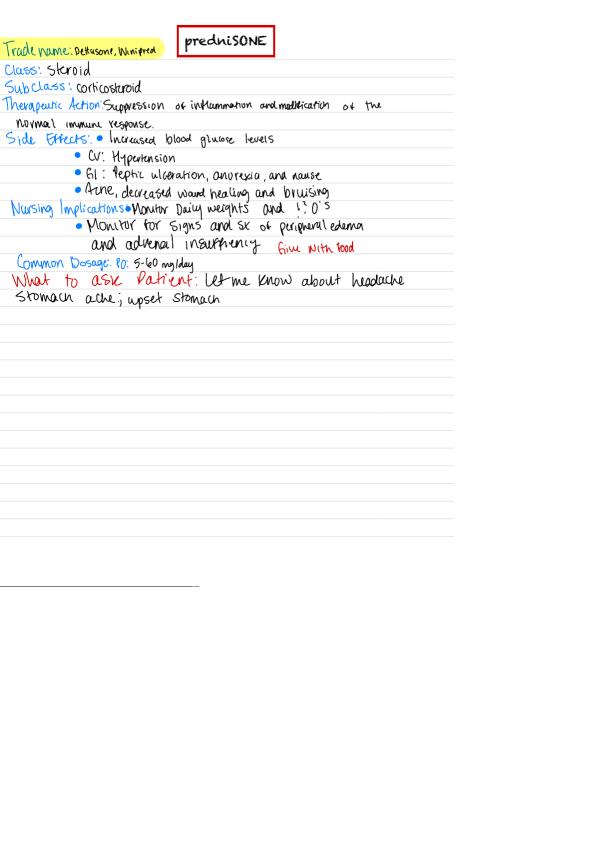 predniSONE
Trade name: Deltasone, Winipred
Class: Steroid
Sub Class: corticosteroid
Therapeutic Action: Suppression of inflammation and modification of the
normal immune response.
Side Effects: • Increased blood glucose levels
• CV: Hypertension
• GI: Peptic ulceration, anorexia, and nause
• Acne, decreased wound healing and bruising
Nursing Implications • Monitor Daily weights and I? O's
• Monitor for signs and sx of peripheral edema
and adrenal insuffiency Give with food
Common Dosage: PO: 5-60 mg/day
What to ask Patient: Let me know about headache
Stomach ache; upset stomach